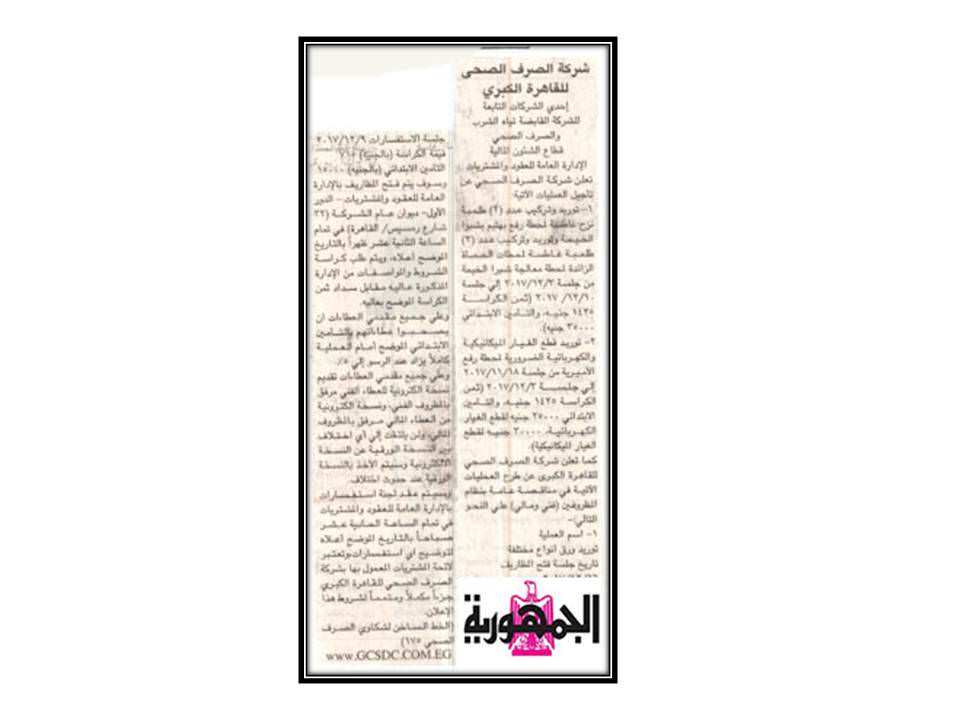 شركة الصرف الصحى
للقاهرة الكبري
إحدي الشركات التابعة
للشركة القابضة لمياه الشرب
والصرف الصحي
قطاع الشئون المالية
الإدارة العامة للعقود والمشتريات
تعلن شركة الصرف الصحي عن
تأجيل العمليات الآتية:
١- توريد وتركيب عدد (٢) طلمبة
نزح غاطسة لمحطة رفع بهتيم بشبرا
الخيمة وتوريد وتركيب عدد (٢)
طلمبة غاطسة لمحطات الحمأة
الزائدة لمحطة معالجة شبرا الخيمة
من جلسة ٢٠١٧/١٢/٣ إلي جلسة
٢٠١٧/١٢/١٠ (ثمن الكراسة
١٤٢٥ جنيه، والتأمين الابتدائي
٣٥٠٠٠ جنيه).
٢- توريد قطع الغيار الميكانيكية
والكهربائية الضرورية لمحطة رفع
الأميرية من جلسة ٢٠١٧/١١/١٨
إلي جلسة ٢٠١٧/١٢/٣ (ثمن
الكراسة ١٤٢٥ جنيه، والتأمين
الابتدائي ٢٥٠٠٠ جنيه لقطع الغيار
الكهربائية، ٣٠٠٠٠ جنيه لقطع
الغيار الميكانيكية).
كما تعلن شركة الصرف الصحي
للقاهرة الكبرى عن طرح العمليات
الآتية في مناقصة عامة بنظام
المظروفين (فني ومالي) علي النحو
التالي:-
١- اسم العملية
توريد ورق أنواع مختلفة
تاريخ جلسة فتح المظاريف
جلسة الاستفسارات ٢٠١٧/١٢/٩
قيمة الكراسة (بالجنيه)
التأمين الابتدائي (بالجنيه) ١٥٠٠٠
وسوف يتم فتح المظاريف بالإدارة
العامة للعقود والمشتريات - الدور
الأول- ديوان عام الشركة (٣٢
شارع رمسيس/ القاهرة) في تمام
الساعة الثانية عشر ظهراً بالتاريخ
الموضح أعلاه، ويتم طلب كراسة
الشروط والمواصفات من الإدارة
المذكورة عاليه مقابل سداد ثمن
الكراسة الموضح بعاليه.
وعلي جميع مقدمي العطاءات أن
يصحبوا عطاءاتهم بالتأمين
الابتدائي الموضح أمام العملية
كاملاً يزاد عند الرسو إلي ٥٪.
وعلي جميع مقدمي العطاءات تقديم
نسخة الكترونية للعطاء الفني مرفق
بالمظروف الفني، ونسخة الكترونية
من العطاء المالي مرفق بالمظروف
المالي، ولن يلتفت إلي أي اختلاف
بين النسخة الورقية عن النسخة
الالكترونية وسيتم الأخذ بالنسخة
الورقية عند حدوث اختلاف.
وسيتم عقد لجنة استفسارات
بالإدارة العامة للعقود والمشتريات
في تمام الساعة الحادية عشر
صباحاً بالتاريخ الموضح أعلاه
لتوضيح أي استفسارات وتعتبر
لائحة المشتريات المعمول بها بشركة
الصرف الصحي للقاهرة الكبري
جزءاً مكملاً ومتمماً لشروط هذا
الإعلان.
(الخط الساخن لشكاوي الصرف
الصحي ١٧٥)
www.GCSDC.COM.EG
الجمهورية